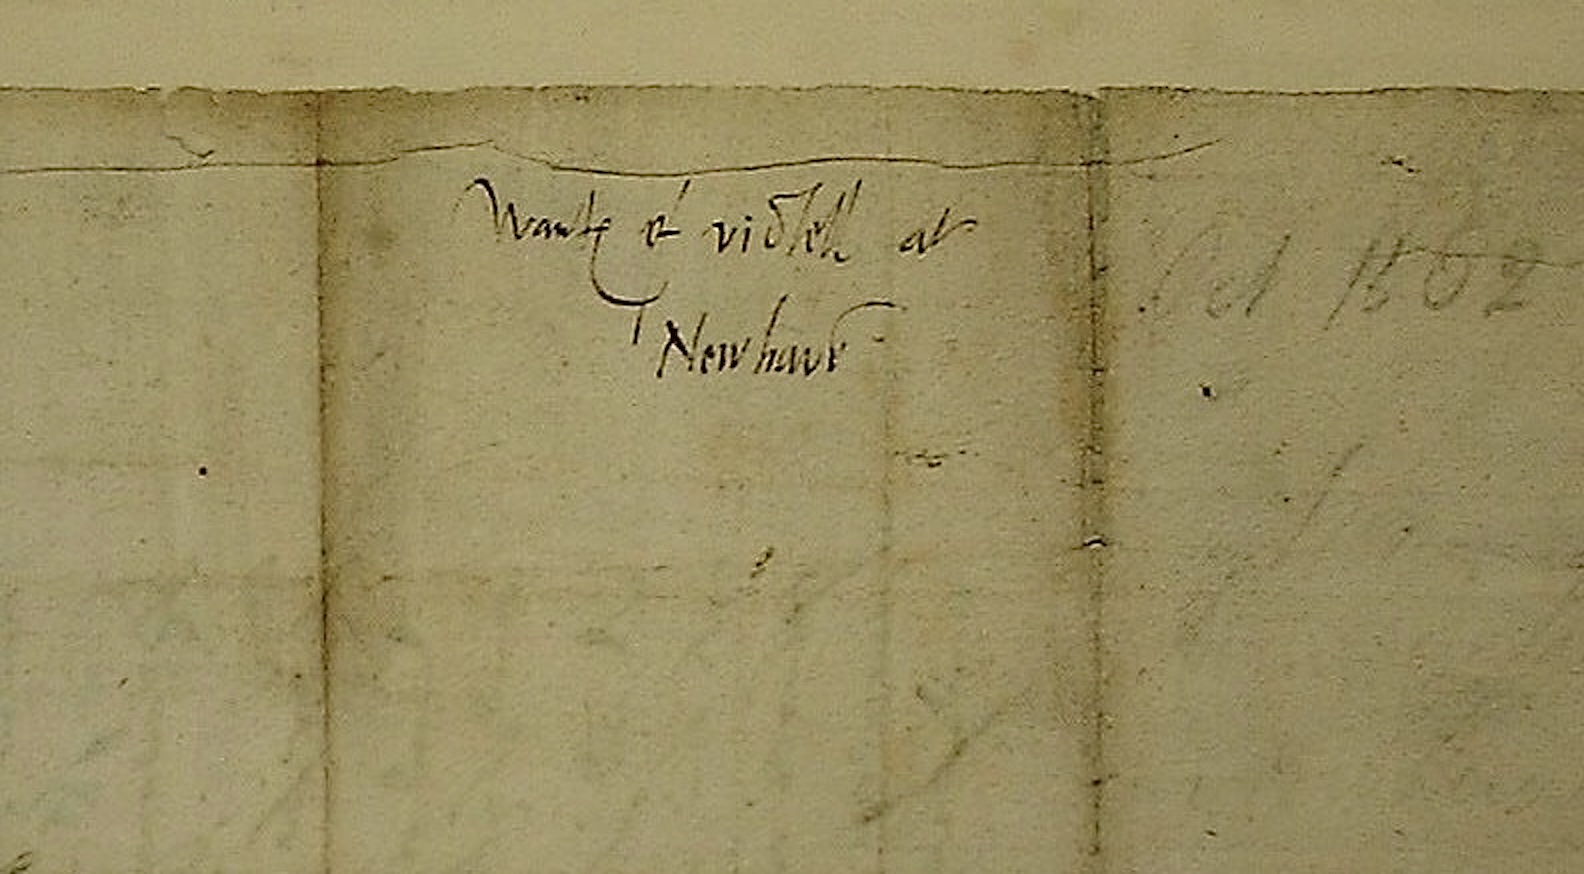 Wantꝭ of victell at
Newhavē
Oct 1562